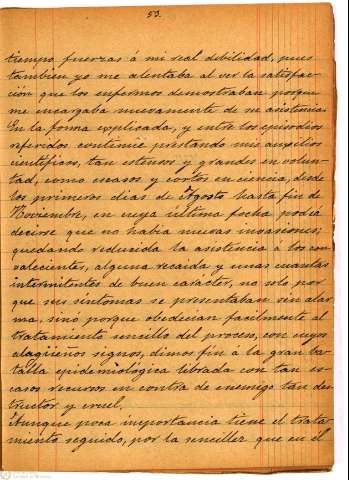 53.
tiempo fuerzas á mi real debilidad, pues
tambien yo me alentaba al ver la satisfac-
ción que los enfermos demostraban porque
me encargaba nuevamente de su asistencia.
En la forma esplicada, y entre los episodios
referidos continué prestando mis auxilios
científicos, tan estensos y grandes en volun-
tad, como escasos y cortos en ciencia, desde
los primeros dias de Agosto hasta fin de
Noviembre, en cuya última fecha podia
decirse que no habia nuevas invasiones;
quedando reducida la asistencia á los con-
valecientes, alguna recaida y unas cuantas
intermitentes de buen carácter, no solo por
que sus síntomas se presentaban sin alar-
ma, sinó porque obedecian facilmente al
tratamiento sencillo del proceso, con cuyos
alagüeños signos, dimos fin á la gran ba-
talla epidemiológica librada con tan es-
casos recursos en contra de enemigo tan des-
tructor y cruel.
Aunque poca importancia tiene el trata-
miento seguido, por la sencillez que en él